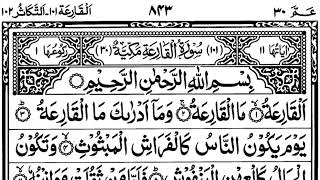 القارعة ١٠١ التكاثر ١٠٢ ٨٤٣ عم ٣٠
اٰیَاتُهَا ١١ (١٠١) سُوْرَةُ الْقَارِعَةِ مَكِّيَّةٌ (٣٠) رُكُوْعُهَا ١
بِسْمِ اللّٰهِ الرَّحْمٰنِ الرَّحِيْمِ
اَلْقَارِعَةُ ۙ﴿١﴾ مَا الْقَارِعَةُ ۚ﴿٢﴾ وَمَاۤ اَدْرٰىكَ مَا الْقَارِعَةُ ؕ﴿٣﴾
يَوْمَ يَكُوْنُ النَّاسُ كَالْفَرَاشِ الْمَبْثُوْثِ ۙ﴿٤﴾ وَتَكُوْنُ
الْجِبَالُ كَالْعِهْنِ الْمَنْفُوْشِ ؕ﴿٥﴾ فَاَمَّا مَنْ ثَقُلَتْ مَوَازِيْنُهٗ